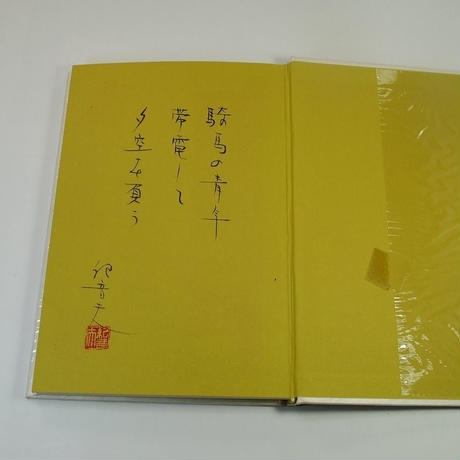 騎馬の青年
帯電して
夕空を負う
紀音夫